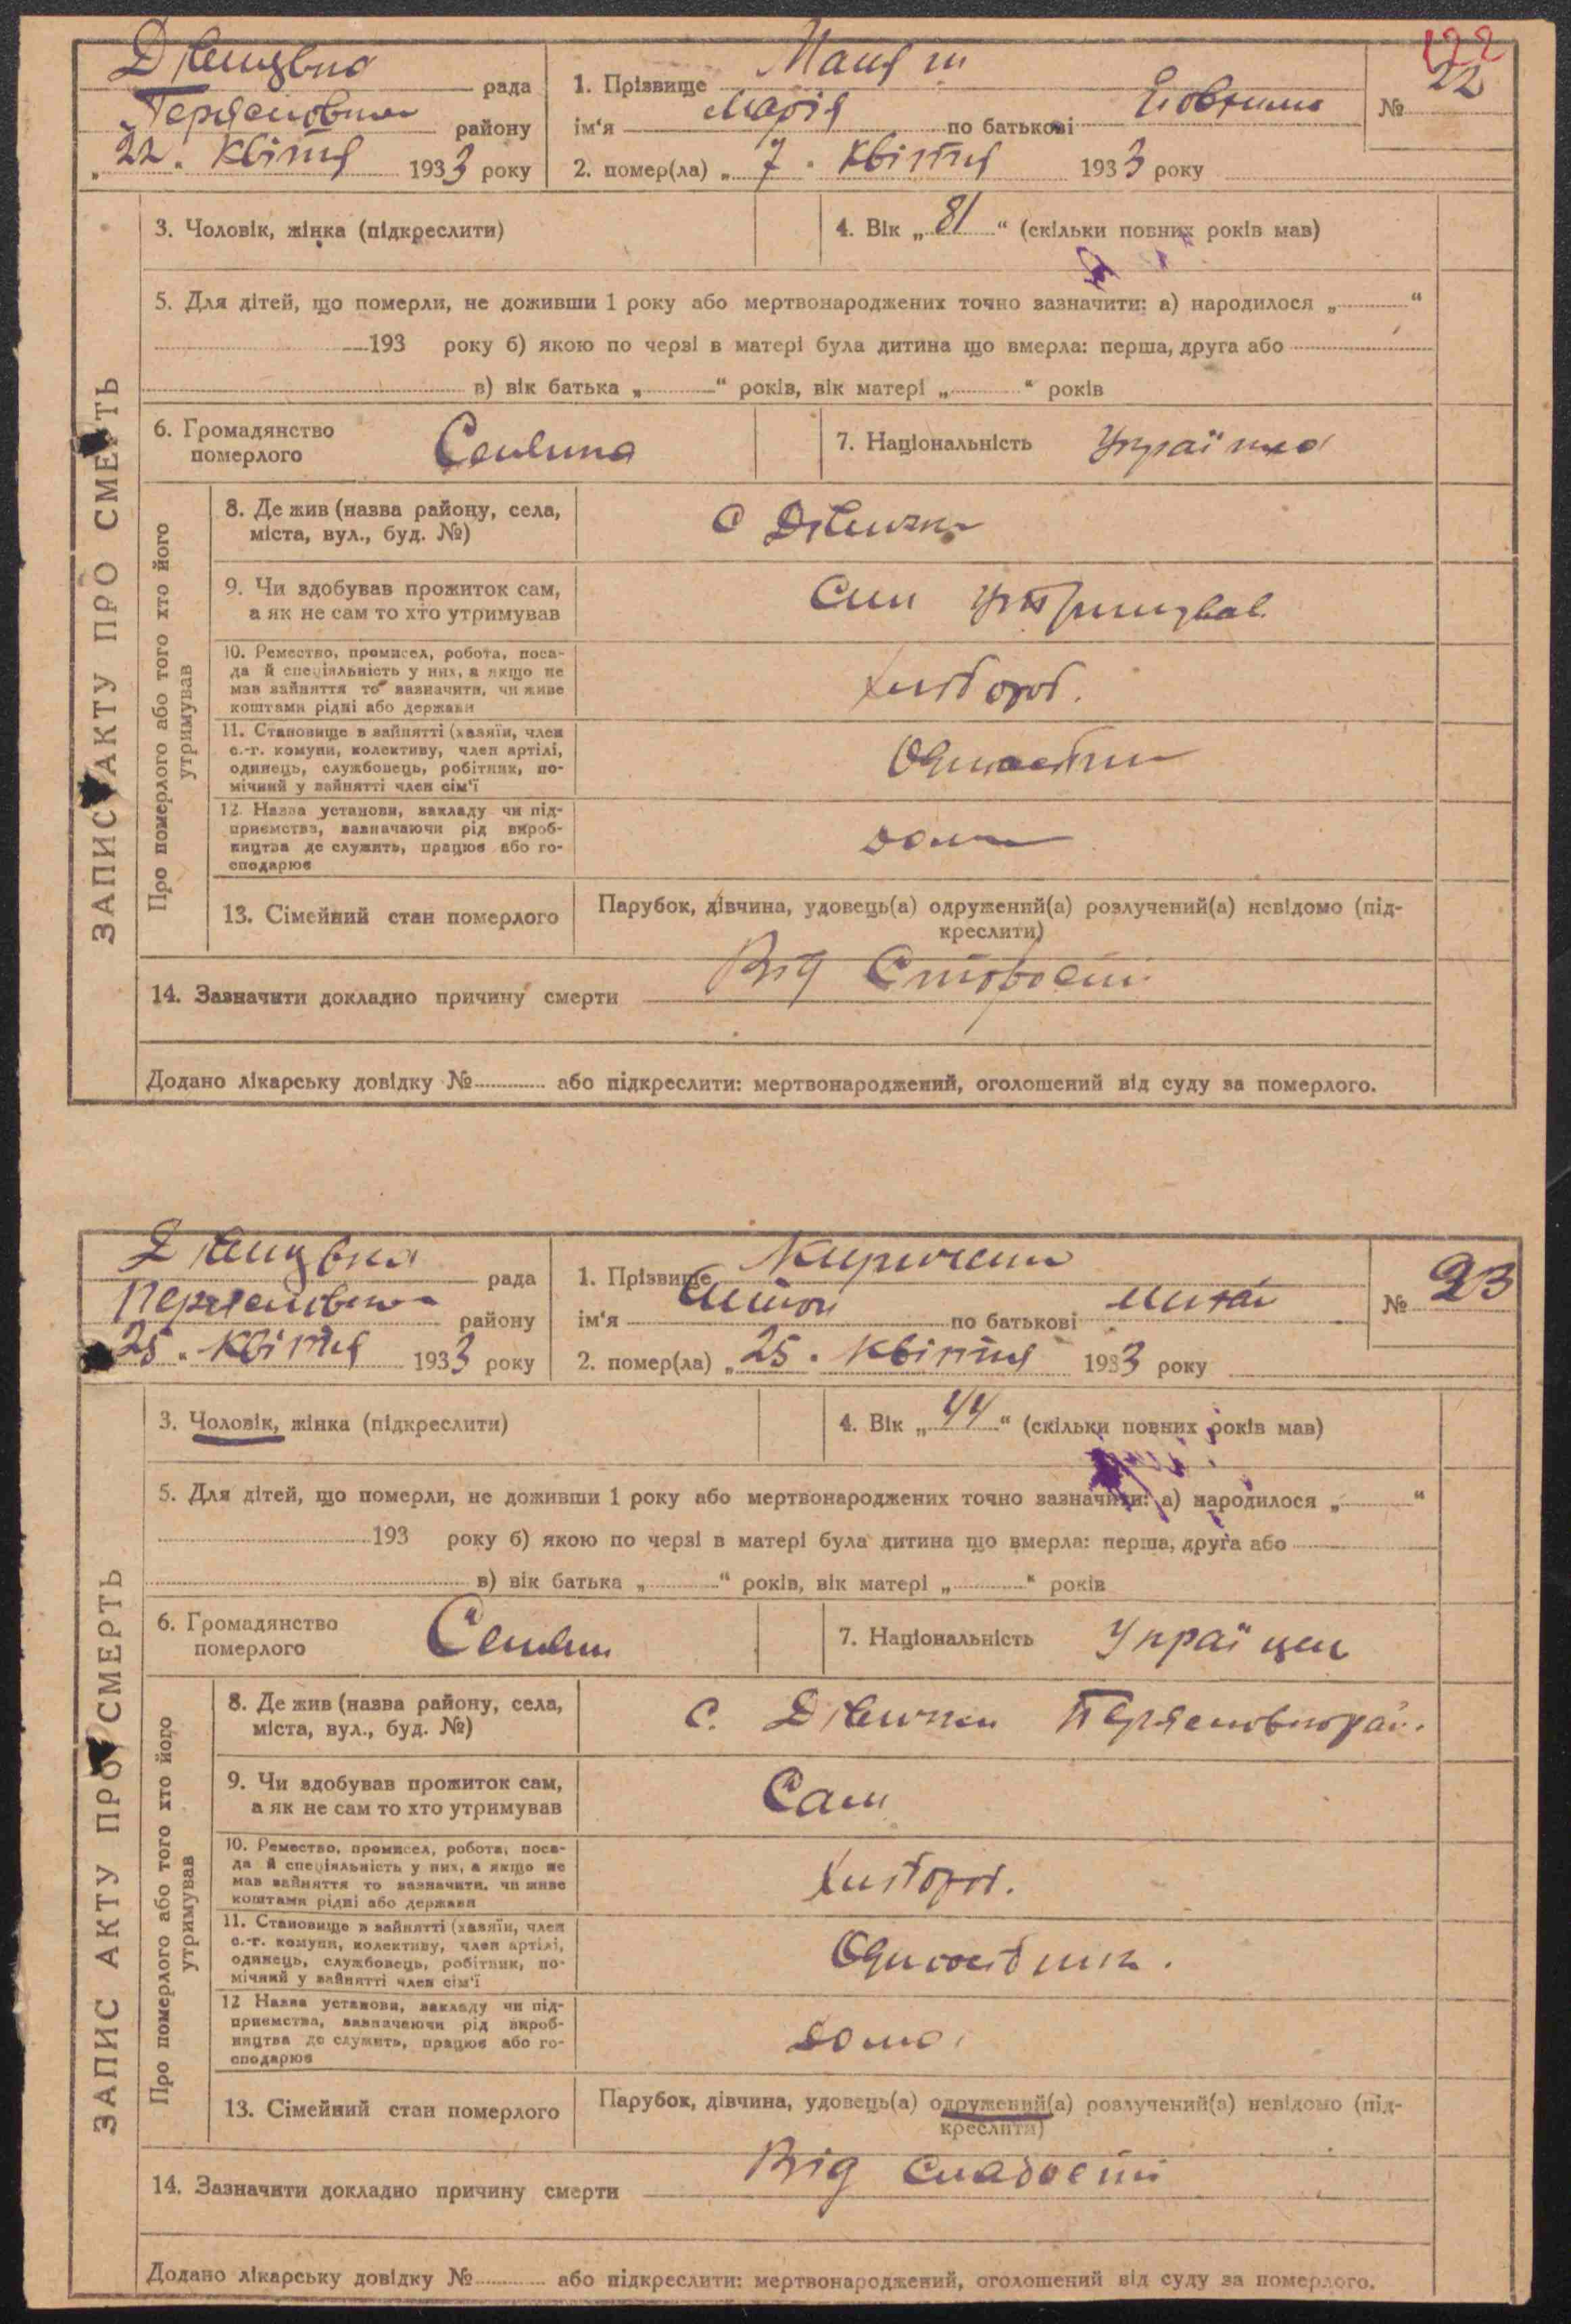 122
рада
району
22. Квітня 1933 року
1. Прізвище
ім'я Марія по батькові
2. помер(ла) „ 7 . Квітня 1933 року
№ 22
ЗАПИС АКТУ ПРО СМЕРТЬ
3. Чоловік, жінка (підкреслити)
4. Вік „ 81 “ (скільки повних років мав)
5. Для дітей, що померли, не доживши 1 року або мертвонароджених точно зазначити: а) народилося „ “
193 року б) якою по черзі в матері була дитина що вмерла: перша, друга або
в) вік батька „ “ років, вік матері „ “ років
6. Громадянство
померлого
Селянка
7. Національність
Про померлого або того хто його
утримував
8. Де жив (назва району, села,
міста, вул., буд. №)
с Дівички
9. Чи здобував прожиток сам,
а як не сам то хто утримував
Син утримував
10. Ремество, промисел, робота, поса-
да й спеціяльність у них, а якщо не
мав зайняття то зазначити, чи живе
коштами рідні або держави
Хлібороб.
11. Становище в зайнятті (хазяїн, член
с.-г. комуни, колективу, член артілі,
одинець, службовець, робітник, по-
мічний у зайнятті член сім'ї
12. Назва установи, закладу чи під-
приємства, зазначаючи рід вироб-
ництва де служить, працює або го-
сподарює
дома
13. Сімейний стан померлого
Парубок, дівчина, удовець(а) одружений(а) розлучений(а) невідомо (під-
креслити)
14. Зазначити докладно причину смерти
Від Старости
Додано лікарську довідку № або підкреслити: мертвонароджений, оголошений від суду за померлого.
рада
району
25. Квітня 1933 року
1. Прізвище
ім'я по батькові
2. помер(ла) „ 25 . Квітня 1933 року
№ 23
ЗАПИС АКТУ ПРО СМЕРТЬ
3. Чоловік, жінка (підкреслити)
4. Вік „ 44 “ (скільки повних років мав)
5. Для дітей, що померли, не доживши 1 року або мертвонароджених точно зазначити: а) народилося „ “
193 року б) якою по черзі в матері була дитина що вмерла: перша, друга або
в) вік батька „ “ років, вік матері „ “ років
6. Громадянство
померлого
Селянин
7. Національність
Українец
Про померлого або того хто його
утримував
8. Де жив (назва району, села,
міста, вул., буд. №)
с. Дівички
9. Чи здобував прожиток сам,
а як не сам то хто утримував
Сам
10. Ремество, промисел, робота, поса-
да й спеціяльність у них, а якщо не
мав зайняття то зазначити, чи живе
коштами рідні або держави
Хлібороб.
11. Становище в зайнятті (хазяїн, член
с.-г. комуни, колективу, член артілі,
одинець, службовець, робітник, по-
мічний у зайнятті член сім'ї
Одноосібник.
12 Назва установи, закладу чи під-
приємства, зазначаючи рід вироб-
ництва де служить, працює або го-
сподарює
дома
13. Сімейний стан померлого
Парубок, дівчина, удовець(а) одружений(а) розлучений(а) невідомо (під-
креслити)
14. Зазначити докладно причину смерти
Від слабости
Додано лікарську довідку № або підкреслити: мертвонароджений, оголошений від суду за померлого.